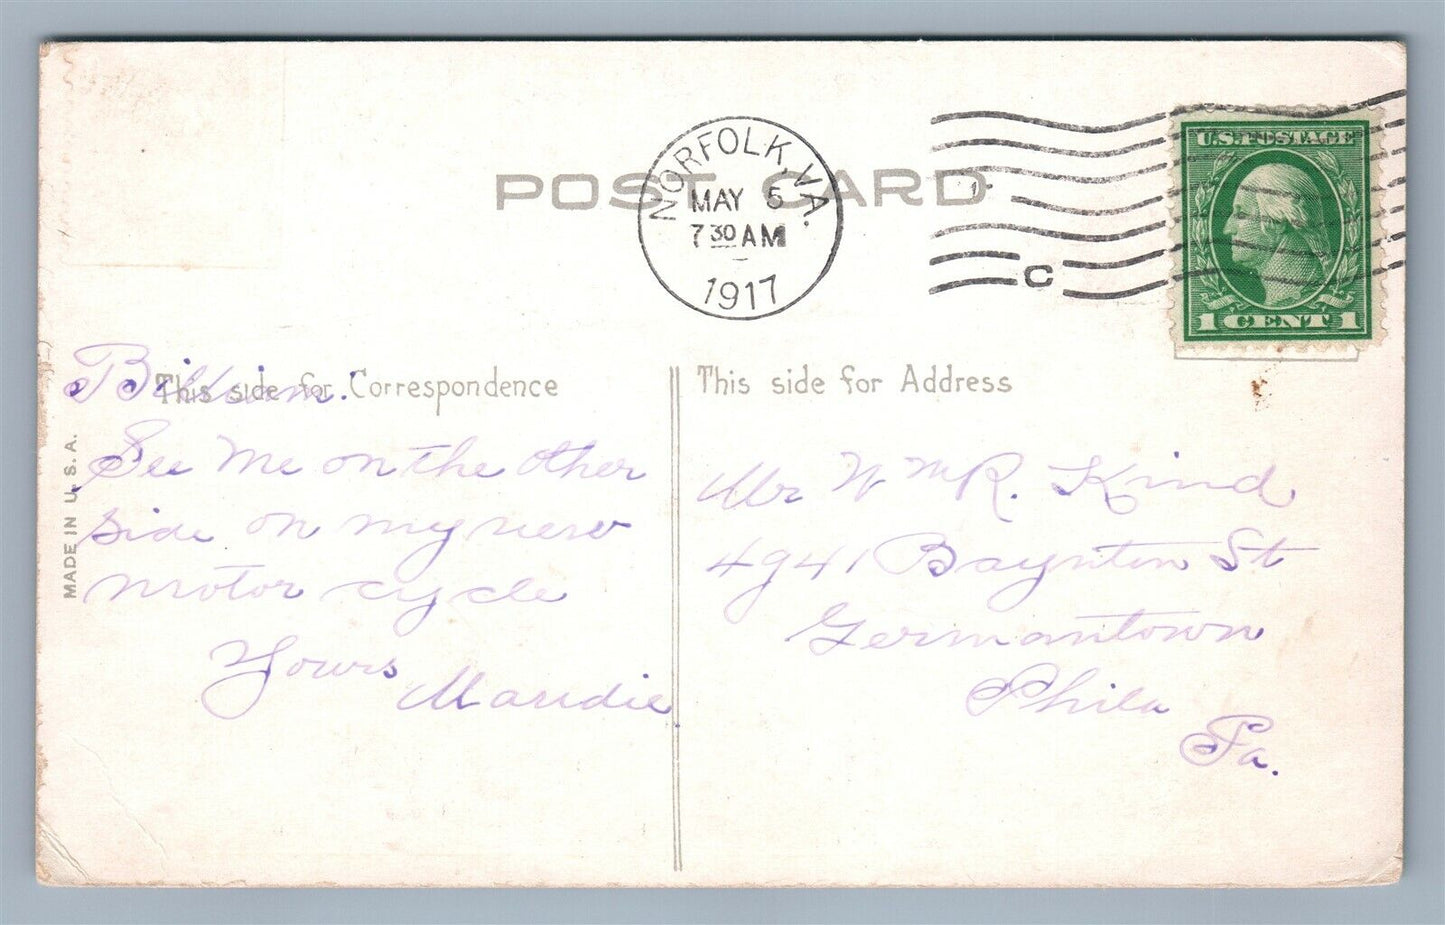 POST CARD
NORFOLK, VA.
MAY 5
7 30 AM
1917
C
U.S. POSTAGE
1 CENT 1
This side for Correspondence
This side for Address
MADE IN U.S.A.
See Me on the Other
side on my new
motor cycle
Yours Maudie
Mr Wm R. Kind
4941 Baynton St
Germantown
Phila
Pa.